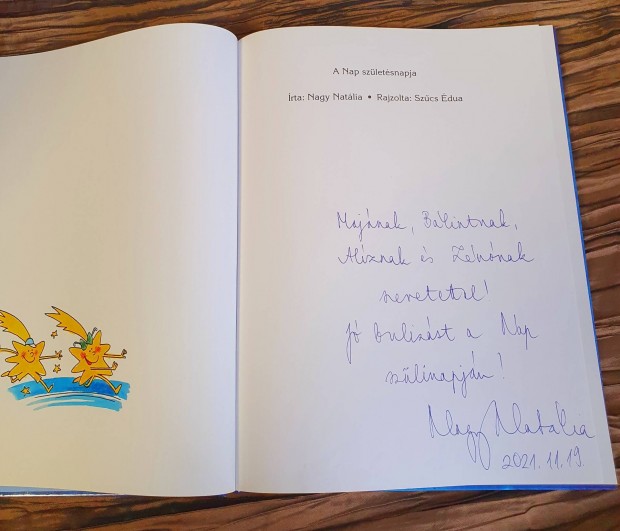 A Nap születésnapja
Írta: Nagy Natália • Rajzolta: Szűcs Édua
Majának, Bálintnak,
Alíznak és Zénónak
szeretettel!
Jó bulizást a Nap
szülinapján!
Nagy Natália
2021.11.19.